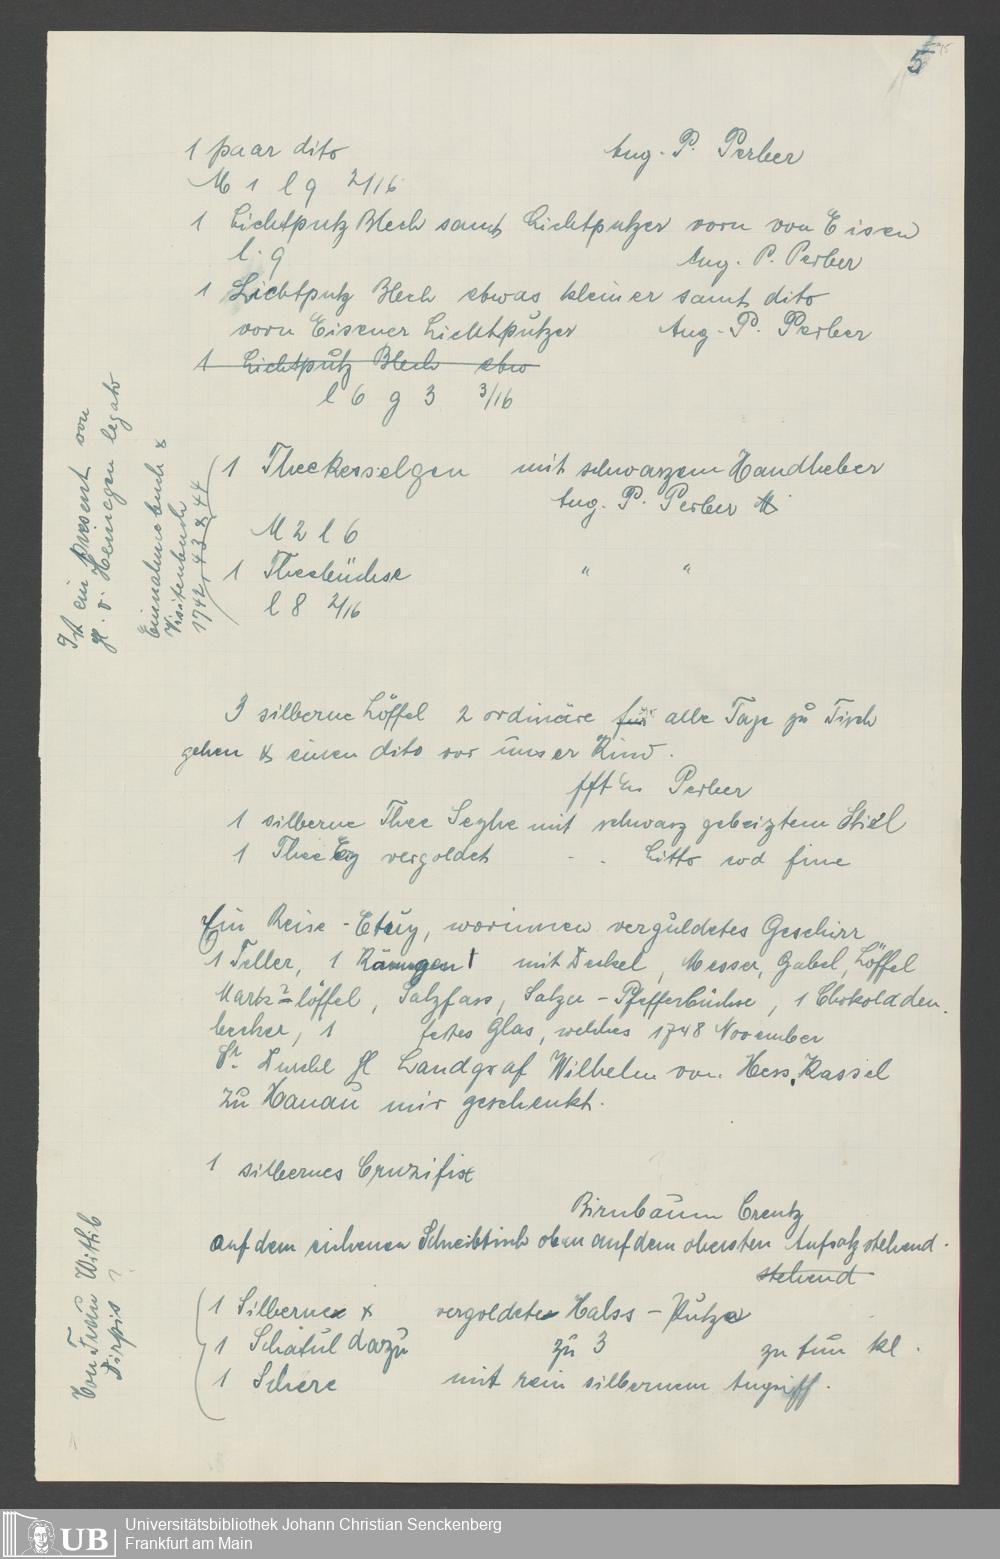 5
1 paar dito Aug. P. Perber
M 1 l 9 2/16
1 Lichtputz Blech samt Lichtputzer vorn von Eisen
l. 9 Aug. P. Perber
1 Lichtputz Blech etwas kleiner samt dito
vorn Eisener Lichtputzer Aug. P. Perber
1 Lichtputz Blech etw
l 6 g 3 3/16
Ist ein present von
H. v. Heinegen legato
Einnahmebuch &
Visitenbuch
1742, 43 & 44
1 Theekesselgen mit schwarzem Handheber
Aug. P. Perber
M 2 l 6
1 Theebüchse " "
l 8 2/16
3 silberne Löffel 2 ordinäre für alle Tage zu Tisch
gehen & einen dito vor unser Kind.
Perber
1 silberne Thee Seyhe mit schwarz gebeiztem Stiel
1 Thee vergoldet - . Litto fine
Ein Reise-Etuy, worinnen verguldetes Geschirr
1 Teller, 1 mit Deckel, Messer, Gabel, Löffel
löffel, Salzfass, Salzer-Pfefferbüchse, 1 Chokoladden
becher, 1 Glas, welches 1748 November
Sr. Durchl H Landgraf Wilhelm von Hess. Kassel
zu Hanau mir geschenkt.
1 silbernes Cruzifix
Birnbaum Creutz
auf dem eichenen Schreibtisch oben auf dem obersten Aufsatz stehend.
stehend
Von Frau Wittib
?
1 Silberne & vergoldete Halss-Putze
1 Schatul dazu zu 3 zu tun kl.
1 Schere mit rein silbernem Angriff.
UB
Universitätsbibliothek Johann Christian Senckenberg
Frankfurt am Main